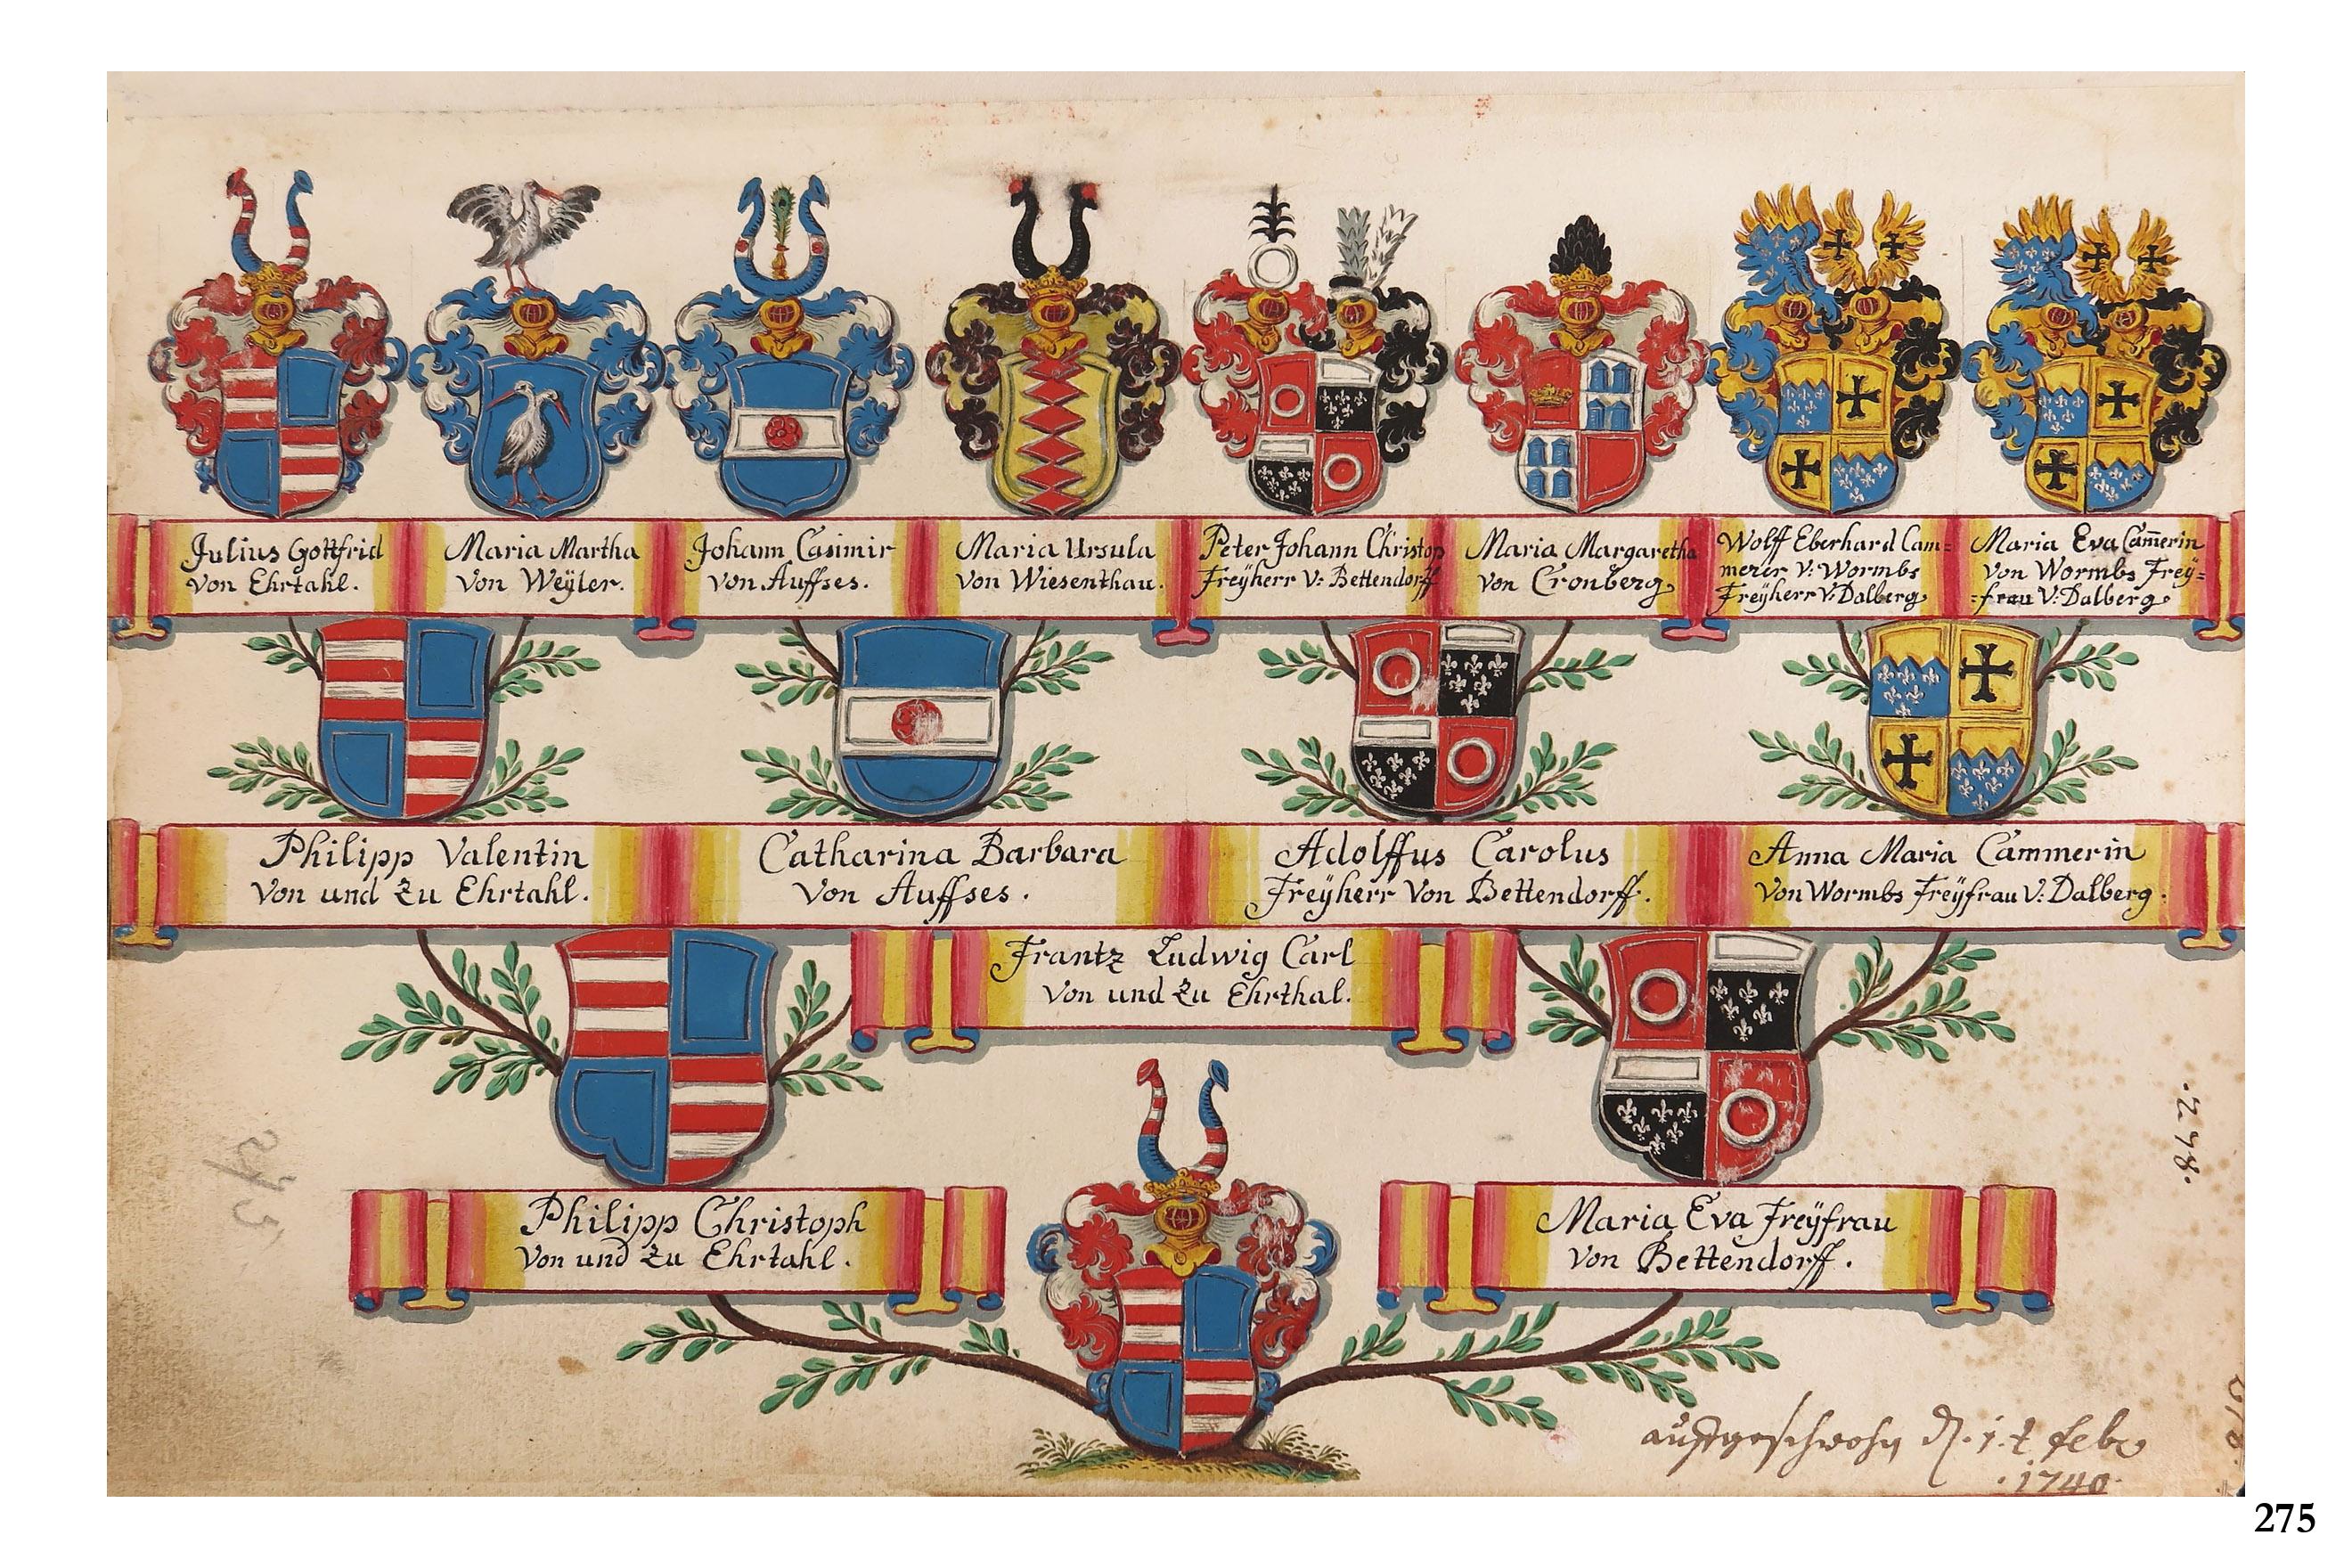 Julius Gottfrid
Von Ehrtahl.
Maria Martha
Von Weÿler.
Johann Casimir
von Auffses.
Maria Ursula
von Wiesenthau.
Peter Johann Christop
Freÿherr V: Bettendorff
Maria Margaretha
von Cronberg
Wolff Eberhard Cam=
merer V: Wormbs
Freÿherr V: Dalberg
Maria Eva Cam̄erin
von Wormbs Freÿ=
=frau V: Dalberg.
Philipp Valentin
Von und Zu Ehrtahl.
Catharina Barbara
Von Auffses.
Adolffus Carolus
Freÿherr Von Bettendorff.
Anna Maria Cammerin
Von Wormbs Freÿfrau V: Dalberg.
Frantz Ludwig Carl
Von und Zu Ehrthal.
Philipp Christoph
Von und Zu Ehrtahl.
Maria Eva Freÿfrau
Von Bettendorff.
.248.
1740.
275